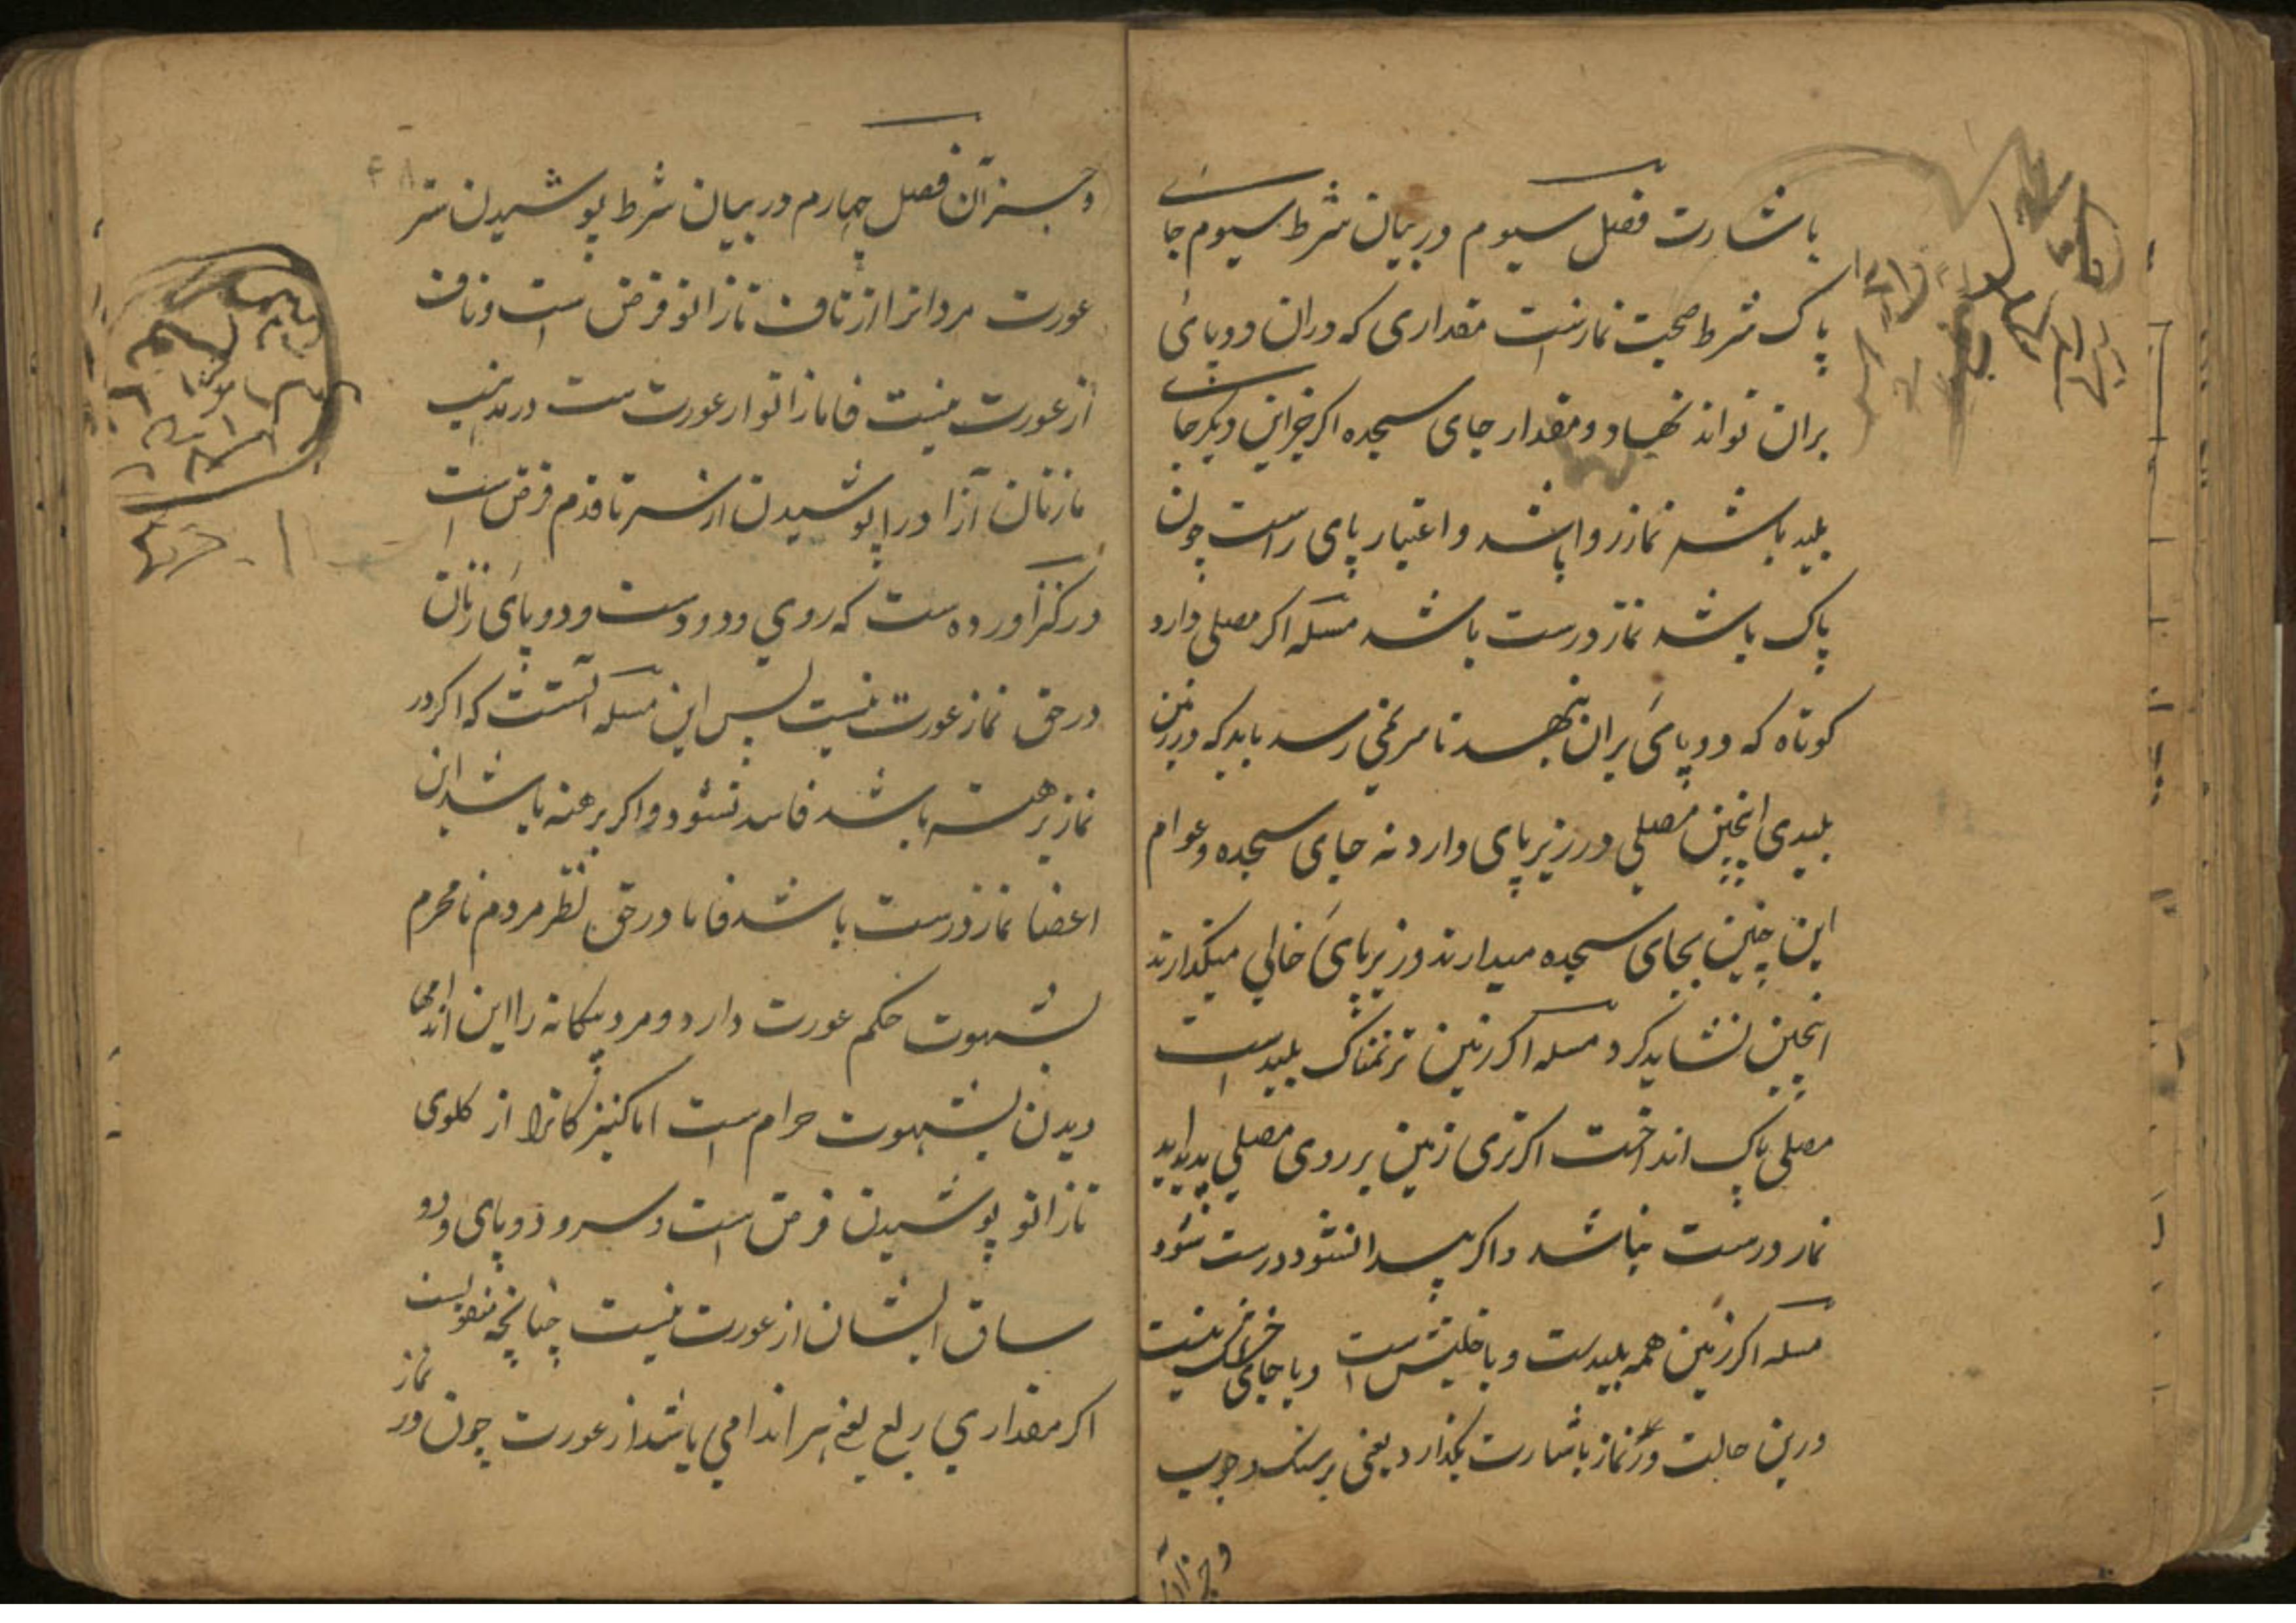 باشارت فصل سیوم در بیان شرط سیوم جای
پاک شرط صحت نمازست مقداری که دران دو پای
بران تواند نهاد و مقدار جای سجده اگر جز این دیگر جای
پلید باشد نماز روا باشد و اعتبار پای راست چون
پاک باشد نماز درست باشد مسئله اگر مصلی دارد
کوتاه که دو پای بران نهد تا سر نمی رسد باید که در زمین
پلیدی اینچنین مصلی در زیر پای دارد نه جای سجده و عوام
این چنین بجای سجده میدارند و زیر پای خالی میگذارند
اینچنین نشاید کرد مسله اگر زمین تر نمناک پلید است
مصلی پاک انداخت اگر تری زمین بر روی مصلی پدید آید
نماز درست نباشد و اگر پیدا نشود درست شود
مسله اگر زمین همه پلیدست و یا خلیش است و یا جای خشک نیست
درین حالت نماز باشارت بگذارد یعنی بر سنگ و چوب
و جز آن
و جز آن فصل چهارم در بیان شرط پوشیدن ستر
عورت مردانرا از ناف تا زانو فرض است و ناف
از عورت نیست فاما زانو از عورت ست در مذهب
ما زنان آزاد را پوشیدن از سر تا قدم فرض است
در کنز آورده ست که روی و دو دست و دو پای زنان
در حق نماز عورت نیست پس این مسله آنست که اگر در
نماز برهنه باشد فاسد نشود و اگر برهنه باشد این
اعضا نماز درست باشد فاما در حق نظر مردم نامحرم
بشهوت حکم عورت دارد و مرد بیگانه را این اندامها
دیدن بشهوت حرام ست اما کنیزکانرا از گلوی
تا زانو پوشیدن فرض است و سر و دو پای و دو
ساق ایشان از عورت نیست چنانچه منقولست
اگر مقداری ربع یعنی هر اندامی باشد از عورت چون در نماز